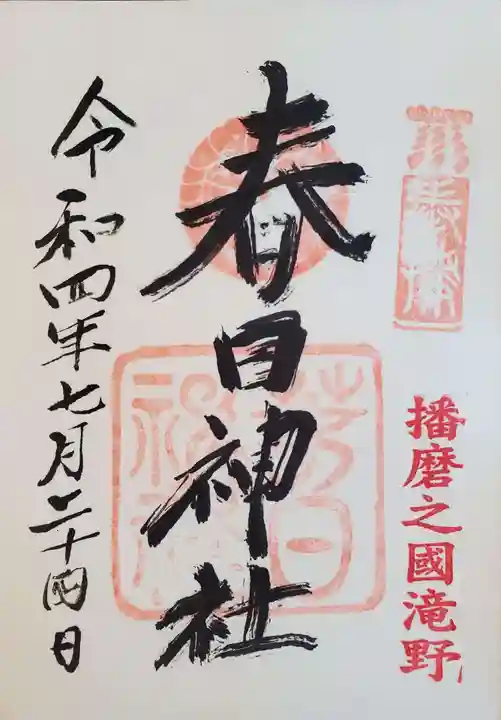 播磨之國滝野
春日神社
令和四年七月二十四日